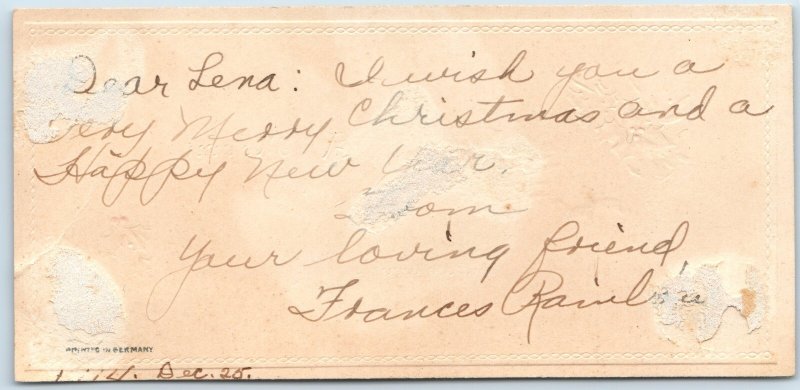 Dear Lena: I wish you a
Very Merry Christmas and a
Happy New Year.
From
Your loving friend,
Frances
PRINTED IN GERMANY
Dec. 25.